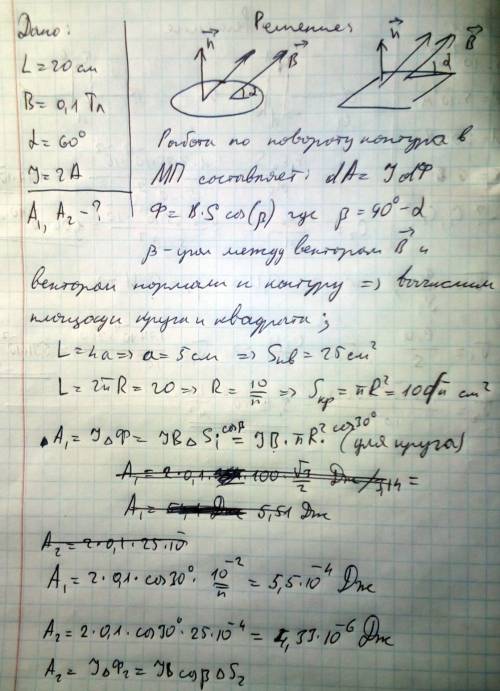 Дано: Решение:
L = 20 см
B = 0,1 Тл
α = 60°
J = 2A
A₁, A₂ - ?
n B α
n B α
Работа по повороту контура в
МП составляет: dA = J dФ
Ф = B·S cos(β) где β = 90° - α
β - угол между вектором B и
вектором нормали к контуру => вычислим
площади круга и квадрата;
L = 4a => a = 5 см => Sкв = 25 см²
L = 2πR = 20 => R = 10/π => Sкр = πR² = 100/π см²
A₁ = JΔФ = JBΔS₁ cosβ = JB·πR²·cos30° (для круга)
A₁ = 2·0,1· ·100·√3/2 Дж /3,14 =
A₁ = 5,51 Дж
A₂ = 2·0,1·25·10⁻
A₁ = 2·0,1·cos30°·10⁻²/π = 5,5·10⁻⁴ Дж
A₂ = 2·0,1·cos30°·25·10⁻⁴ = 4,33·10⁻⁶ Дж
A₂ = JΔФ₂ = JB cosβ ΔS₂